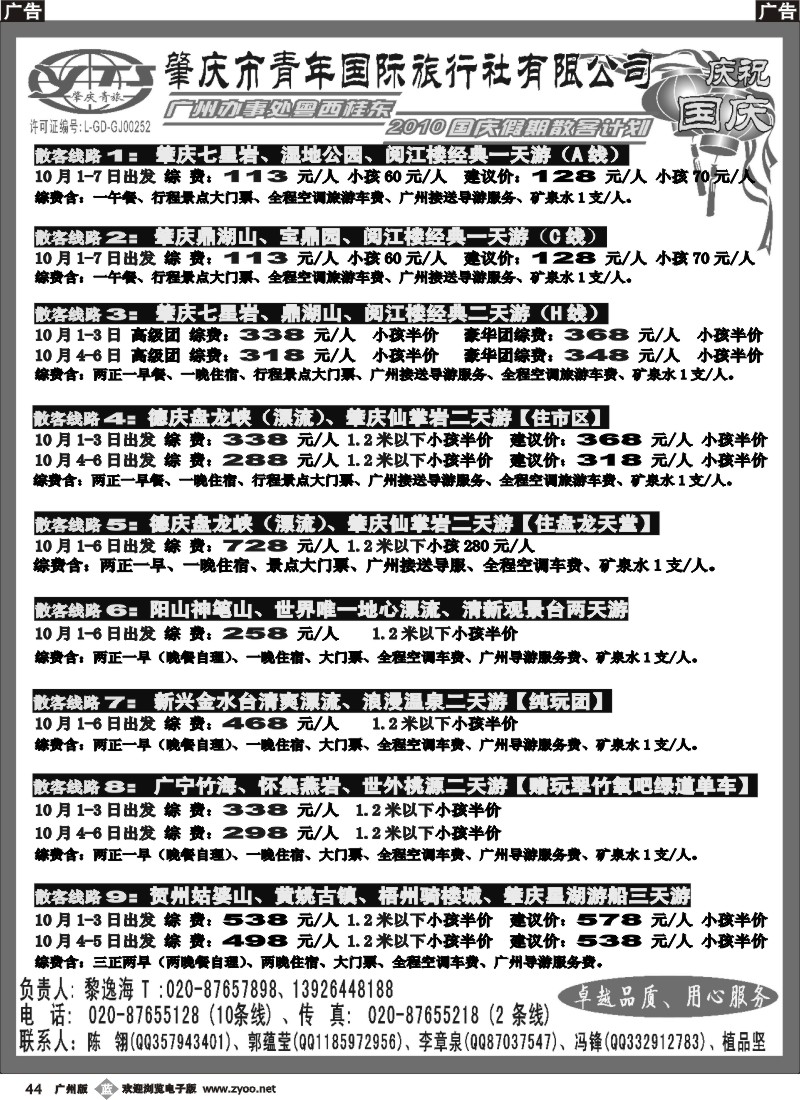 广告
广告
YTS
肇庆青旅
许可证编号:L-GD-GJ00252
肇庆市青年国际旅行社有限公司
广州办事处粤西桂东
2010国庆假期散客计划
庆祝
国庆
散客线路1：肇庆七星岩、湿地公园、阅江楼经典一天游（A线）
10月1-7日出发 综 费：113 元/人 小孩60元/人 建议价：128 元/人 小孩70元/人
综费含：一午餐、行程景点大门票、全程空调旅游车费、广州接送导游服务、矿泉水1支/人。
散客线路2：肇庆鼎湖山、宝鼎园、阅江楼经典一天游（C线）
10月1-7日出发 综 费：113 元/人 小孩60元/人 建议价：128 元/人 小孩70元/人
综费含：一午餐、行程景点大门票、全程空调旅游车费、广州接送导游服务、矿泉水1支/人。
散客线路3：肇庆七星岩、鼎湖山、阅江楼经典二天游（H线）
10月1-3日 高级团 综费：338 元/人 小孩半价 豪华团综费：368 元/人 小孩半价
10月4-6日 高级团 综费：318 元/人 小孩半价 豪华团综费：348 元/人 小孩半价
综费含：两正一早餐、一晚住宿、行程景点大门票、广州接送导游服务、全程空调旅游车费、矿泉水1支/人。
散客线路4：德庆盘龙峡（漂流）、肇庆仙掌岩二天游【住市区】
10月1-3日出发 综 费：338 元/人 1.2米以下小孩半价 建议价：368 元/人 小孩半价
10月4-6日出发 综 费：288 元/人 1.2米以下小孩半价 建议价：318 元/人 小孩半价
综费含：两正一早餐、一晚住宿、行程景点大门票、广州接送导游服务、全程空调旅游车费、矿泉水1支/人。
散客线路5：德庆盘龙峡（漂流）、肇庆仙掌岩二天游【住盘龙天堂】
10月1-6日出发 综 费：728 元/人 1.2米以下小孩280元/人
综费含：两正一早、一晚住宿、景点大门票、广州接送导服、全程空调车费、矿泉水1支/人。
散客线路6：阳山神笔山、世界唯一地心漂流、清新观景台两天游
10月1-6日出发 综 费：258 元/人 1.2米以下小孩半价
综费含：两正一早（晚餐自理）、一晚住宿、大门票、全程空调车费、广州导游服务费、矿泉水1支/人。
散客线路7：新兴金水台清爽漂流、浪漫温泉二天游【纯玩团】
10月1-6日出发 综 费：468 元/人 1.2米以下小孩半价
综费含：两正一早（晚餐自理）、一晚住宿、大门票、全程空调车费、广州导游服务费、矿泉水1支/人。
散客线路8：广宁竹海、怀集燕岩、世外桃源二天游【赠玩翠竹氧吧绿道单车】
10月1-3日出发 综 费：338 元/人 1.2米以下小孩半价
10月4-6日出发 综 费：298 元/人 1.2米以下小孩半价
综费含：两正一早（晚餐自理）、一晚住宿、大门票、全程空调车费、广州导游服务费、矿泉水1支/人。
散客线路9：贺州姑婆山、黄姚古镇、梧州骑楼城、肇庆星湖游船三天游
10月1-3日出发 综 费：538 元/人 1.2米以下小孩半价 建议价：578 元/人 小孩半价
10月4-5日出发 综 费：498 元/人 1.2米以下小孩半价 建议价：538 元/人 小孩半价
综费含：三正两早（两晚餐自理）、两晚住宿、大门票、全程空调车费、广州导游服务费。
负责人: 黎逸海 T :020-87657898、13926448188
电 话: 020-87655128 (10条线) 、传 真: 020-87655218 (2 条线)
联系人: 陈 翎(QQ357943401)、郭蕴莹(QQ1185972956)、李章泉(QQ87037547)、冯锋(QQ332912783)、植品坚
卓越品质、用心服务
44 广州版 蓝 欢迎浏览电子版 www.zyoo.net